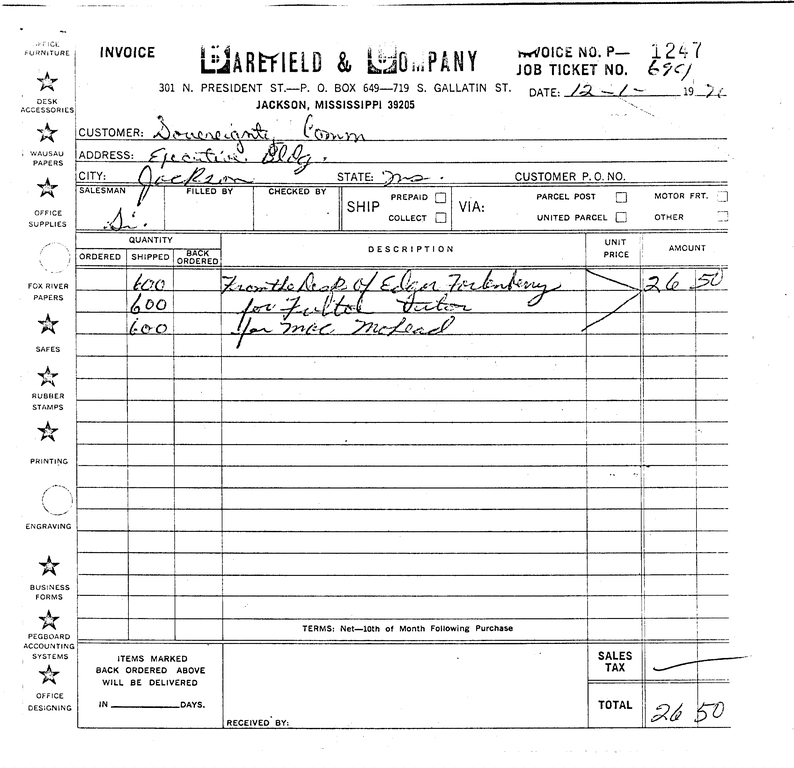 INVOICE
BAREFIELD & COMPANY
INVOICE NO. P— 1247
JOB TICKET NO.
301 N. PRESIDENT ST.—P. O. BOX 649—719 S. GALLATIN ST.
JACKSON, MISSISSIPPI 39205
DATE: 12-1- 19
CUSTOMER: Sovereignty Comm
ADDRESS: Executive Bldg.
CITY: Jackson STATE: Ms. CUSTOMER P.O. NO.
SALESMAN Si. FILLED BY CHECKED BY
SHIP PREPAID COLLECT VIA: PARCEL POST UNITED PARCEL MOTOR FRT. OTHER
QUANTITY
ORDERED SHIPPED BACK ORDERED DESCRIPTION UNIT PRICE AMOUNT
600 From the Desk of Edgar Fortenberry 26 50
600 for Fulton Tutor
600 for Mac McLead
TERMS: Net—10th of Month Following Purchase
ITEMS MARKED
BACK ORDERED ABOVE
WILL BE DELIVERED
IN DAYS.
RECEIVED BY:
SALES TAX
TOTAL 26 50
OFFICE FURNITURE
DESK ACCESSORIES
WAUSAU PAPERS
OFFICE SUPPLIES
FOX RIVER PAPERS
SAFES
RUBBER STAMPS
PRINTING
ENGRAVING
BUSINESS FORMS
PEGBOARD ACCOUNTING SYSTEMS
OFFICE DESIGNING